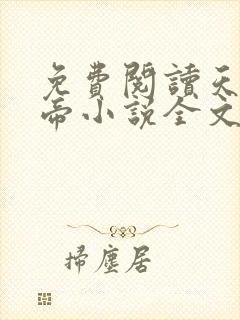 免費閱讀天
帝小說全文
掃塵居